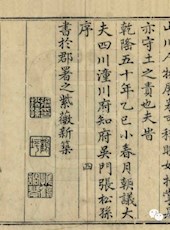 山川人物
亦守土之責也夫峕
乾隆五十年乙巳小春月朝議大
夫四川潼川府知府吳門張松孫
序 四
書於郡署之紫薇新築